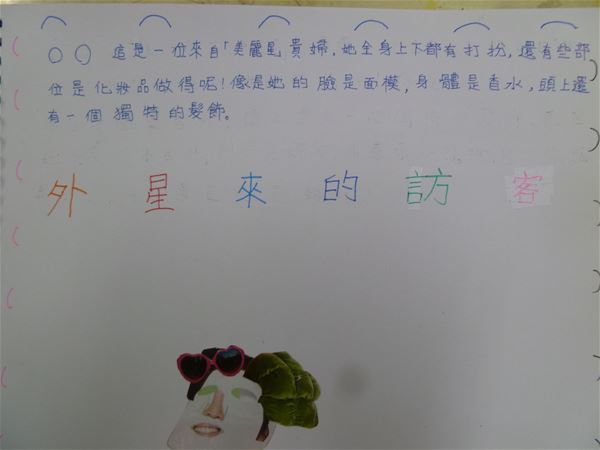 ○○ 這是一位來自「美麗星」貴婦,她全身上下都有打扮,還有些部
位是化妝品做得呢!像是她的臉是面模,身體是香水,頭上還
有一個獨特的髮飾。
外星來的訪客